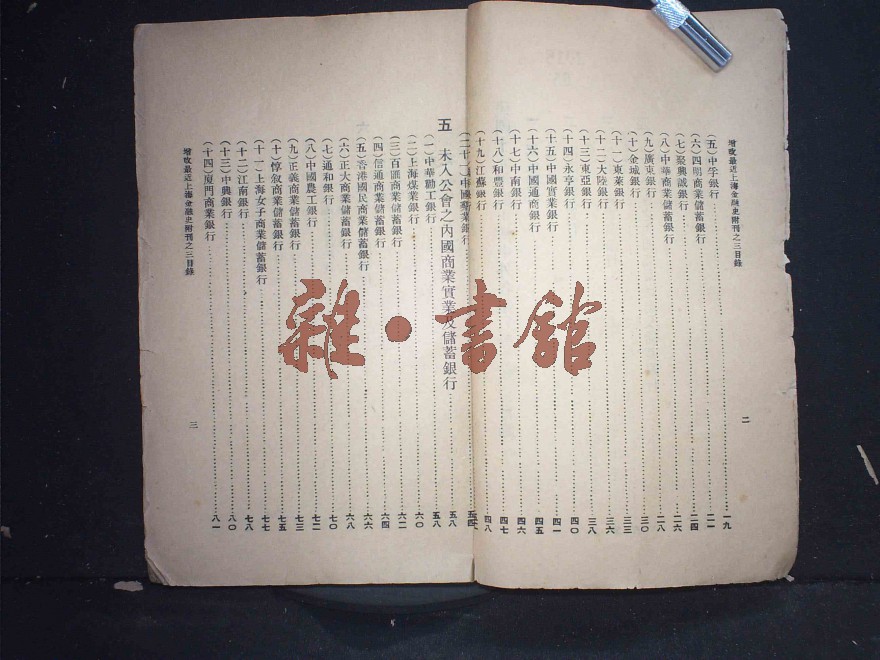 增改最近上海金融史附刊之三目錄
(五)中孚銀行……一九
(六)四明商業儲蓄銀行……二一
(七)聚興誠銀行……二四
(八)中華商業儲蓄銀行……二六
(九)廣東銀行……二八
(十)金城銀行……三〇
(十一)東萊銀行……三三
(十二)大陸銀行……三六
(十三)東亞銀行……三八
(十四)永亨銀行……四〇
(十五)中國實業銀行……四一
(十六)中國通商銀行……四五
(十七)中南銀行……四六
(十八)和豐銀行……四七
(十九)江蘇銀行……四八
二
五 未入公會之內國商業實業及儲蓄銀行……五八
(一)中華勸工銀行……五八
(二)上海煤業銀行……六〇
(三)百匯商業儲蓄銀行……六二
(四)信通商業儲蓄銀行……六四
(五)香港國民商業儲蓄銀行……六六
(六)正大商業儲蓄銀行……六八
(七)通和銀行……七〇
(八)中國農工銀行……七二
(九)正義商業儲蓄銀行……七三
(十)惇敘商業儲蓄銀行……七五
(十一)上海女子商業儲蓄銀行……七七
(十二)江南銀行……七八
(十三)中興銀行……八〇
(十四)廈門商業銀行……八一
增改最近上海金融史附刊之三目錄
三
雜·書館